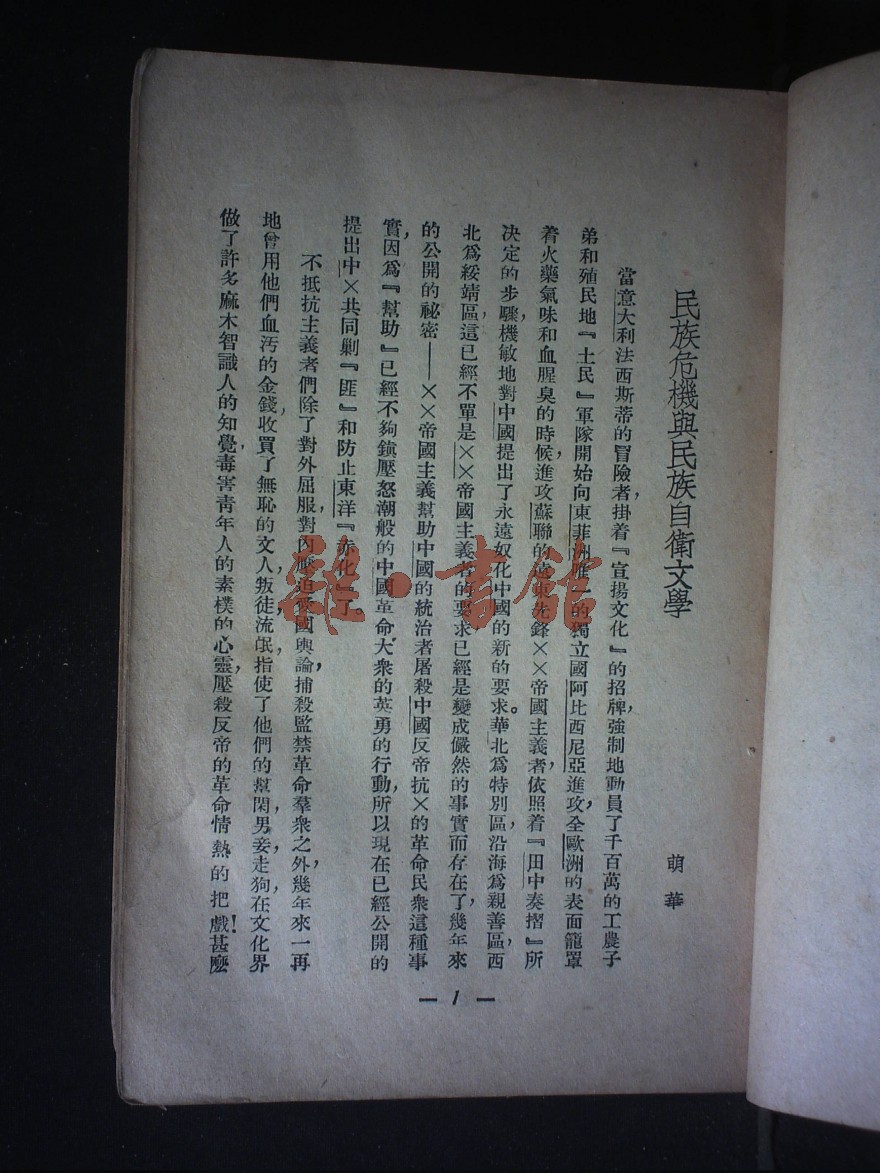 民族危機與民族自衛文學
萌華
當意大利法西斯蒂的冒險者,掛着『宣揚文化』的招牌,強制地動員了千百萬的工農子
弟和殖民地『土民』軍隊開始向東菲洲唯一的獨立國阿比西尼亞進攻,全歐洲的表面籠罩
着火藥氣味和血腥臭的時候,進攻蘇聯的遠東先鋒××帝國主義者,依照着『田中奏摺』所
決定的步驟,機敏地對中國提出了永遠奴化中國的新的要求。華北爲特別區,沿海爲親善區,西
北爲綏靖區,這已經不單是××帝國主義者的要求已經是變成儼然的事實而存在了,幾年來
的公開的祕密——××帝國主義幫助中國的統治者屠殺中國反帝抗×的革命民衆這種事
實,因爲『幫助』已經不夠鎮壓怒潮般的中國革命大衆的英勇的行動,所以現在已經公開的
提出中×共同剿『匪』和防止東洋『赤化』了。
不抵抗主義者們除了對外屈服,對內壓迫愛國輿論,捕殺監禁革命羣衆之外,幾年來一再
地曾用他們血汚的金錢,收買了無恥的文人,叛徒,流氓,指使了他們的幫閑,男妾,走狗,在文化界
做了許多麻木智識人的知覺,毒害青年人的素樸的心靈,壓殺反帝的革命情熱的把戲!甚麼
— 1 —
雜·書館